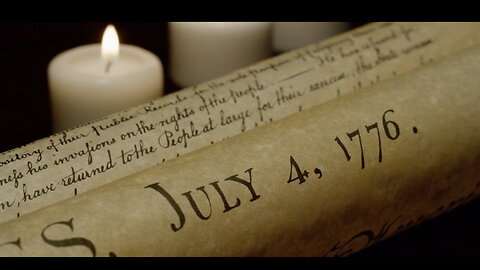 ository of their public Records, for the sole purpose of
ness his invasions on the rights of the people. He has refused for
n, have returned to the People at large for their exercise; the State remain
SS, JULY 4, 1776.